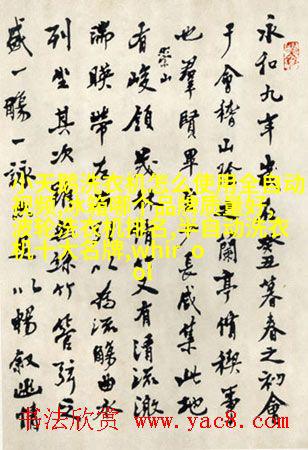 永和九年歲在癸丑暮春之初會
于會稽山陰之蘭亭脩禊事
也羣賢畢至少長咸集此地
有崇山峻領茂林脩竹又有清流激
湍暎帶左右引以為流觴曲水
列坐其次雖無絲竹管弦之
盛一觴一詠亦足以暢敘幽情
小天鹅洗衣机怎么使用全自动
视频,冰箱哪个品牌质量好,
波轮洗衣机排名,半自动洗衣
机十大名牌,
书法欣赏 www.yac8.com